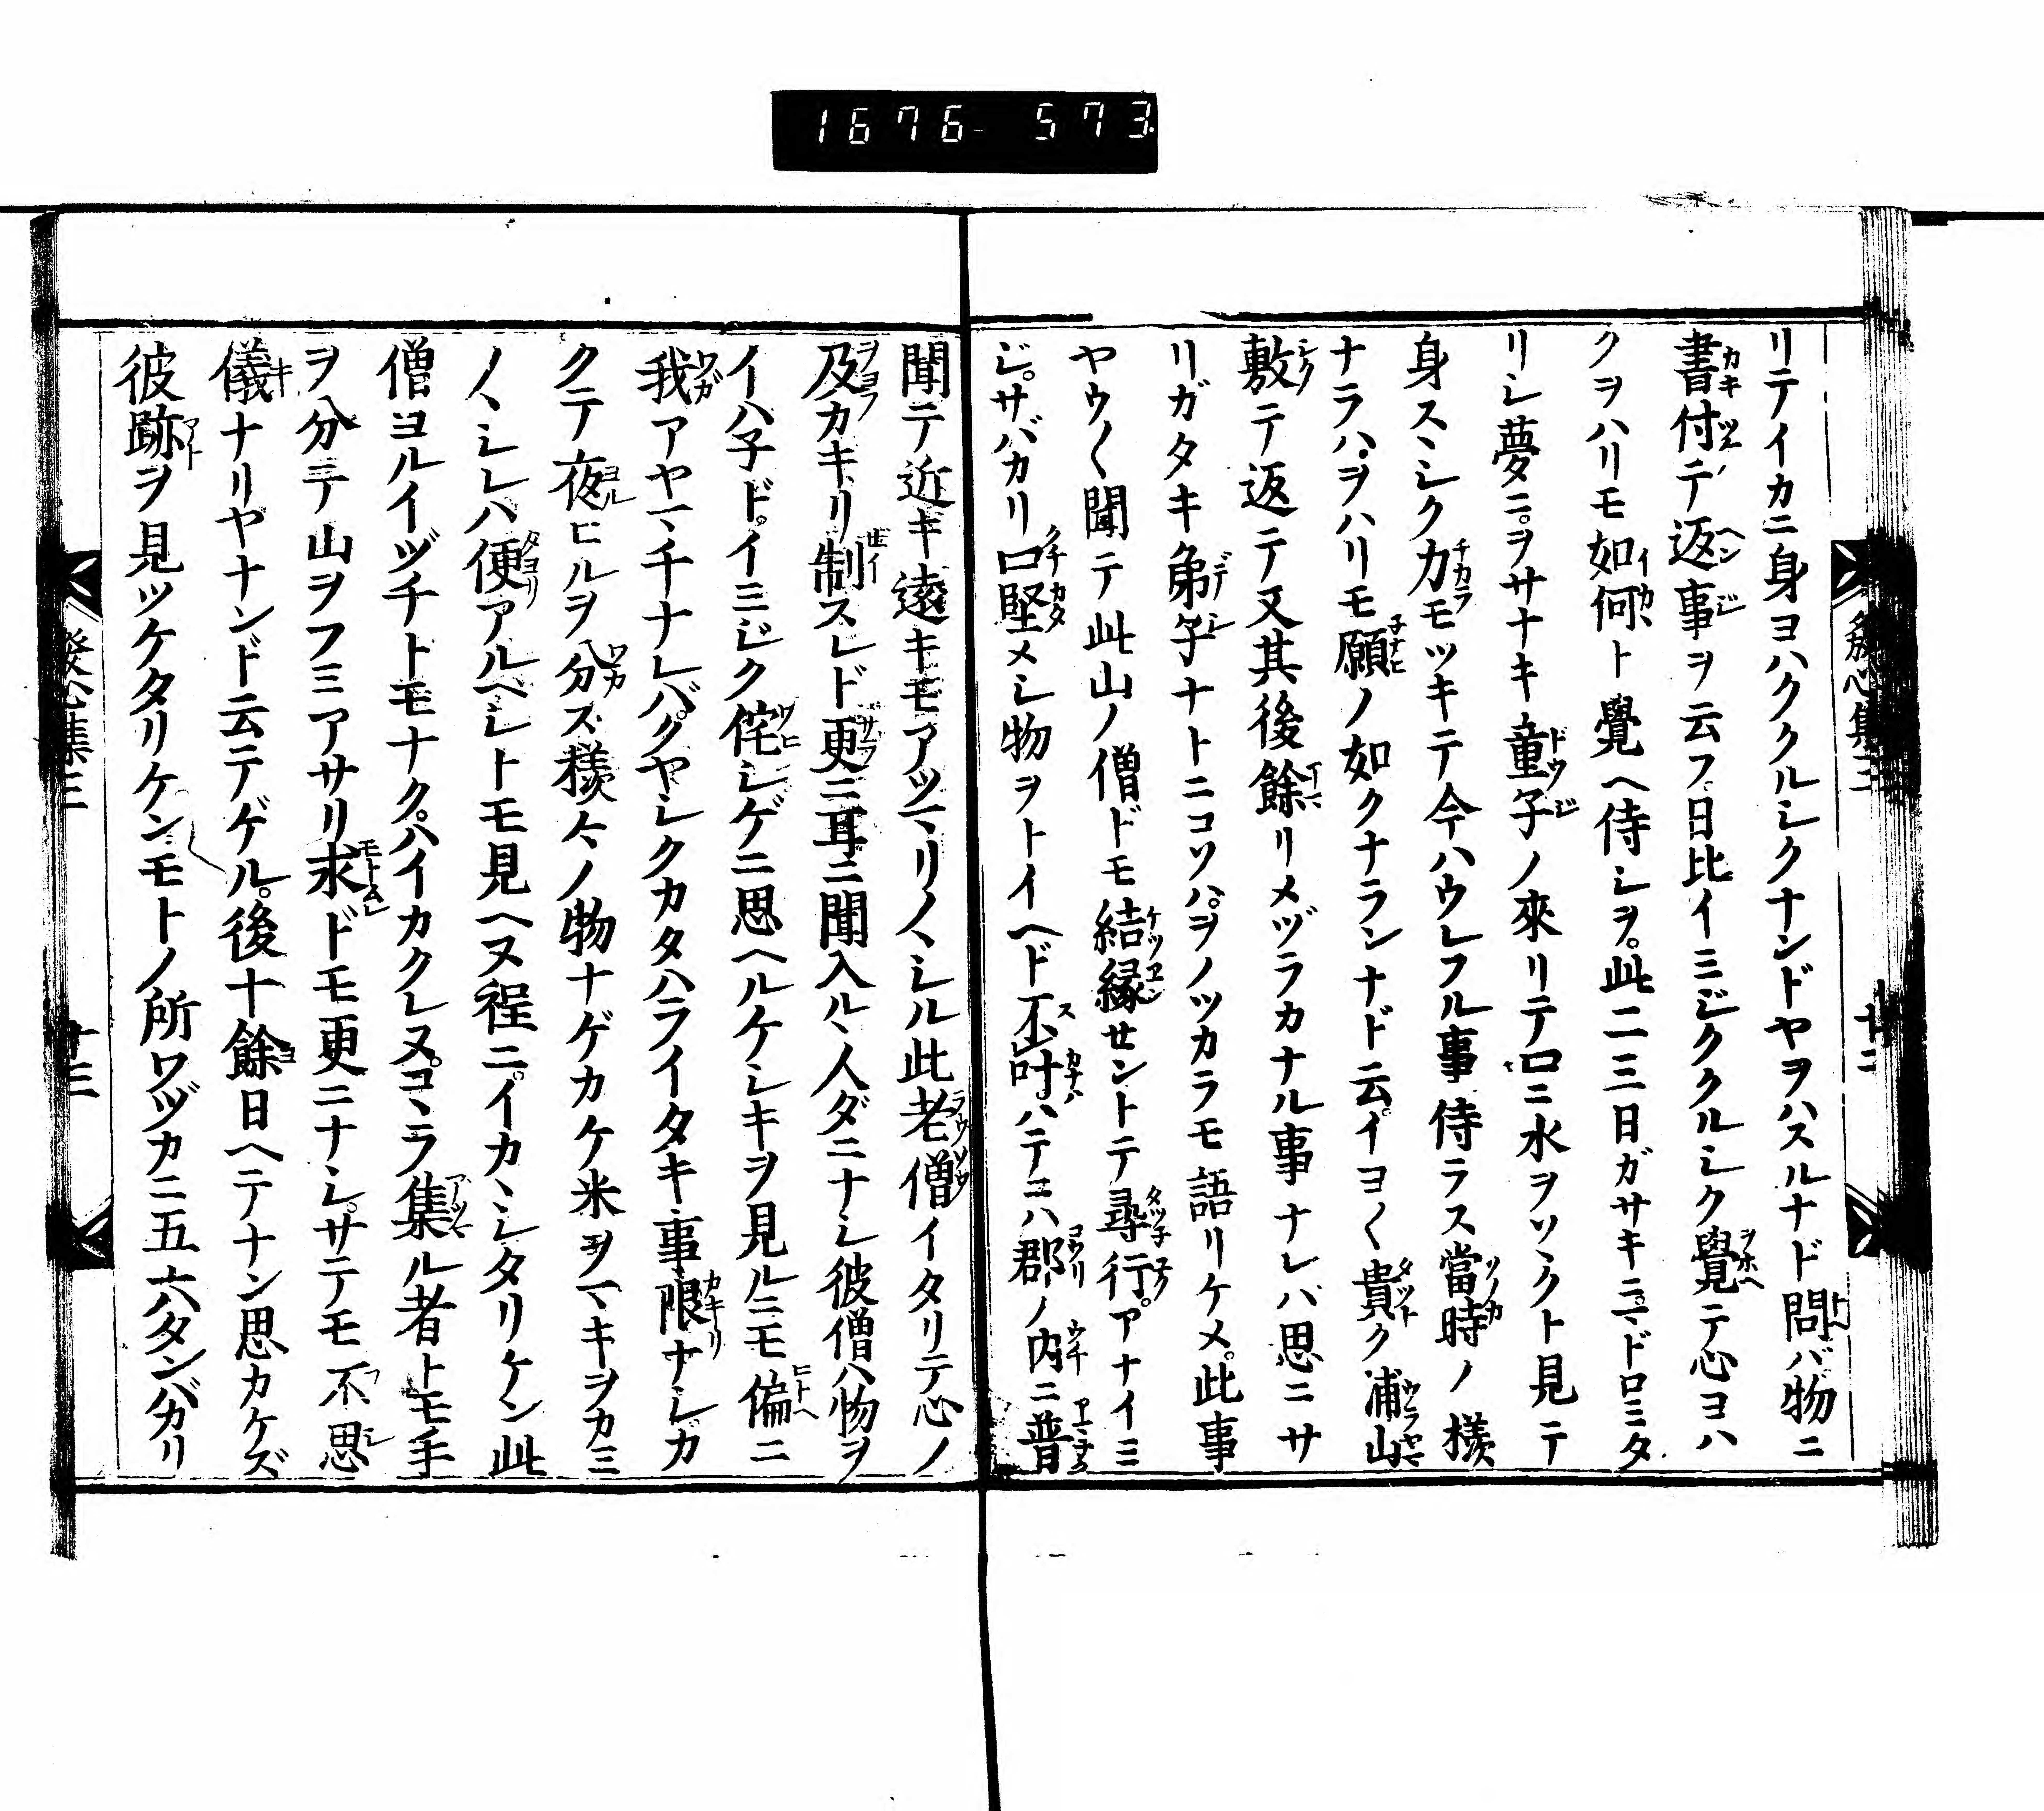 1676 573
發心集三
廿二
リテイカニ身ヨハククルシクナンドヤヲハスルナド問バ物ニ
書付テ返事ヲ云フ日比イミジククルシク覺テ心ヨハ
クヲハリモ如何ト覺ヘ侍シヲ。此二三日ガサキニマドロミタ
リシ夢ニ。ヲサナキ童子ノ來リテ口ニ水ヲソヽクト見テ
身スヽシク力モツキテ今ハウレフル事侍ラス當時ノ樣
ナラハ。ヲハリモ願ノ如クナランナド云。イヨ〱貴ク浦山
敷テ返テ又其後餘リメヅラカナル事ナレバ思ニサ
リガタキ弟子ナトニコソハ。ヲノツカラモ語リケメ。此事
ヤウ〱聞テ此山ノ僧ドモ結縁セントテ尋行。アナイミ
ジ。サバカリ口堅メシ物ヲトイヘド不叶ハテニハ郡ノ内ニ普
聞テ近キ遠キモアツマリノヽシル此老僧イタリテ心ノ
及カキリ制スレド更ニ耳ニ聞入ルヽ人ダニナシ彼僧ハ物ヲ
イハ子ド。イミジク侘シゲニ思ヘルケシキヲ見ルニモ偏ニ
我アヤマチナレバ。クヤシクカタハライタキ事限ナシカ
クテ夜ヒルヲ分ス樣々ノ物ナゲカケ米ヲマキヲカミ
ノヽシレハ便アルヘシトモ見ヘヌ程ニ。イカヽシタリケン此
僧ヨルイヅチトモナク。ハイカクレヌ。コヽラ集ル者トモ手
ヲ分テ山ヲフミアサリ求ドモ更ニナシ。サテモ不思
儀ナリヤナンド云テゲル。後十餘日ヘテナン思カケズ
彼跡ヲ見ツケタリケンモトノ所ワヅカニ五六タンバカリ
發心集三
廿三